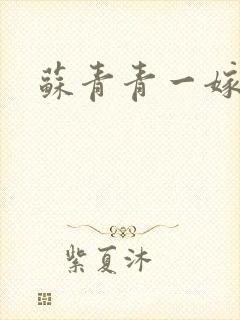 蘇青青一嫁
紫夏沐